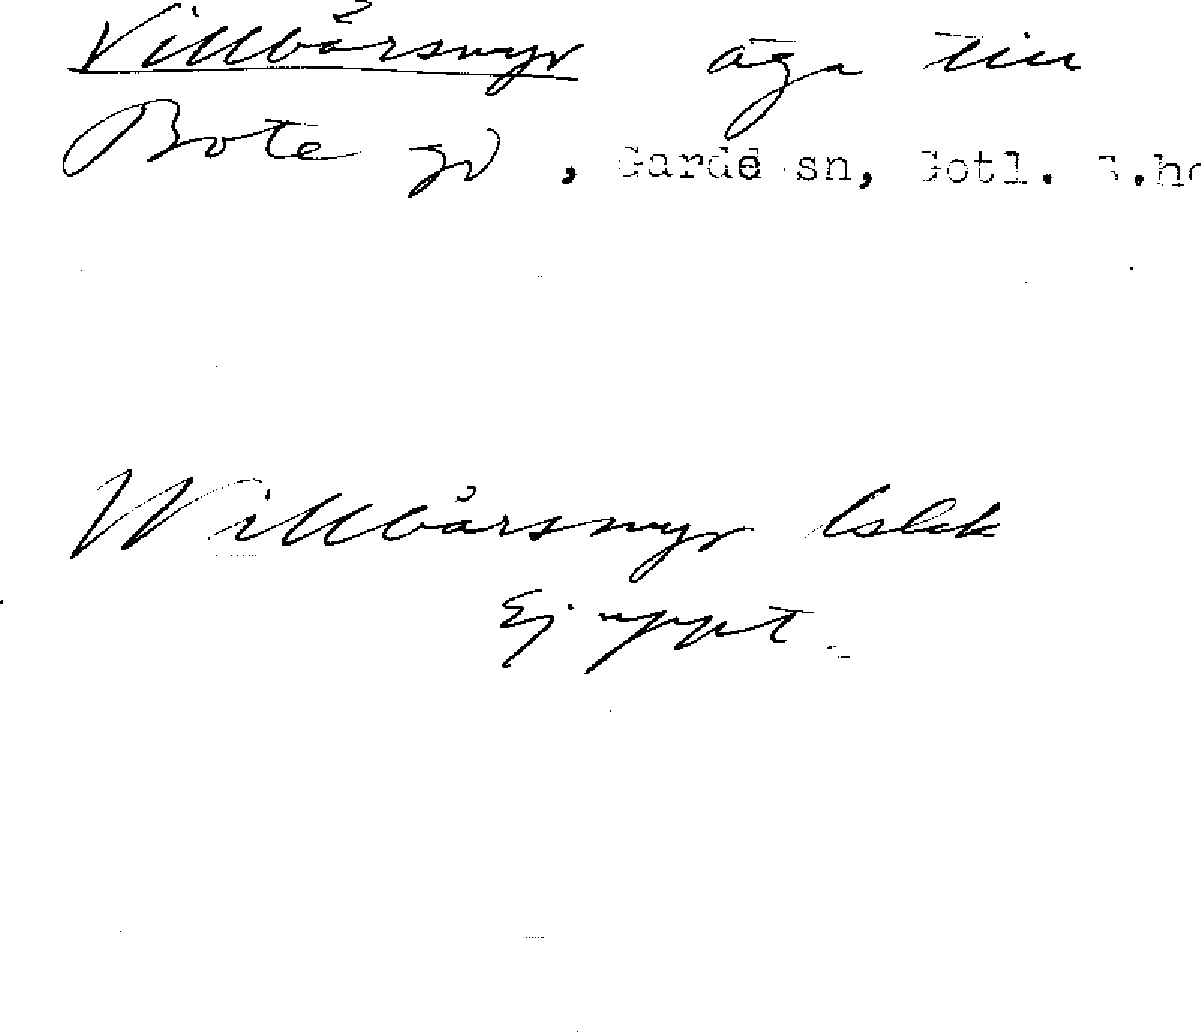 Villbårsmyr äga till
Bote gd, Garde sn, Gotl. S.hd
Willbårsmyr lslk
Ej uppt.